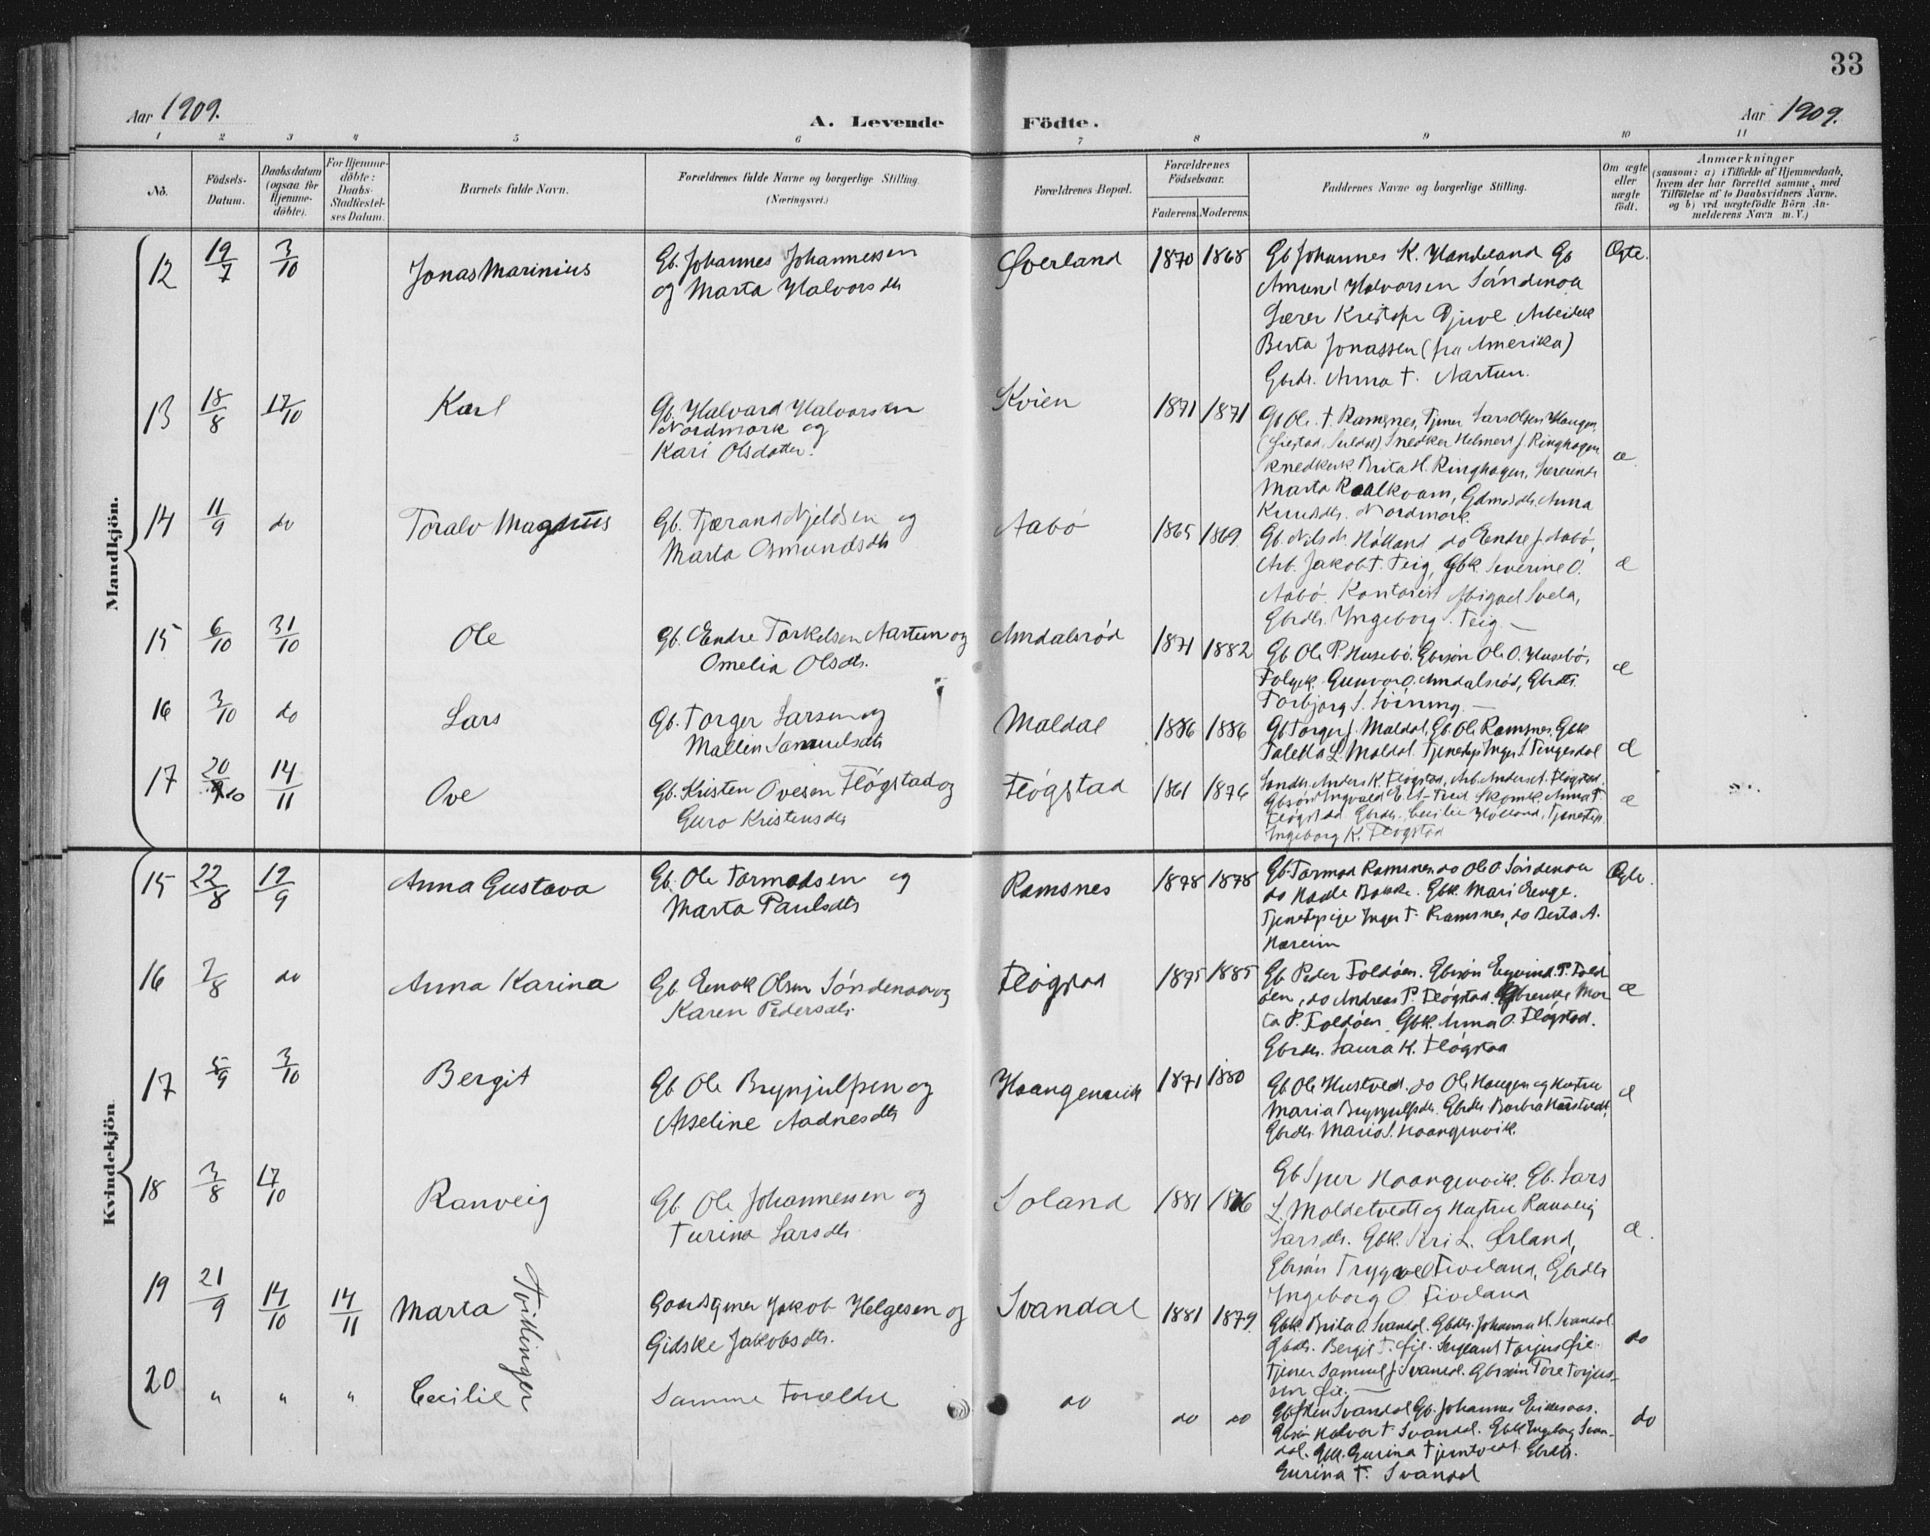 33
Aar 1909. A. Levende Födte. Aar 1909.
1 2 3 4 5 6 7 8 9 10 11
No.
Födsels-
Datum.
Daabsdatum
(ogsaa for
Hjemme-
döbte).
For Hjemme-
döbte:
Daabs-
Stadfæstel-
ses Datum.
Barnets fulde Navn.
Forældrenes fulde Navne og borgerlige Stilling.
(Næringsvei.)
Forældrenes Bopæl.
Forældrenes
Födselsaar.
Faderens. Moderens.
Faddernes Navne og borgerlige Stilling.
Om ægte
eller
uægte
födt.
Anmærkninger
(saasom: a) i Tilfælde af Hjemmedaab,
hvem der har forrettet samme, med
Tilföielse af to Daabsvidners Navne.
og b) ved uægtefödte Börn An-
melderens Navn m. V.)
Mandkjön.
12 19/7 3/10 Jonas Marinius
Gb. Johannes Johannessen
og Marta Halvorsdtr
Øverland 1870 1868
Gb Johannes K. Handeland Gb
Amund Halvorsen Söndenaa
Lærer Krestofer Djuve Arbeidsk
Berta Jonassen (fra Amerika)
Gbrdtr. Anna T. Aartun.
Ægte.
13 18/8 17/10 Karl
Gb. Halvard Halvorsen
Nordmork og
Kari Olsdatter.
Kvien 1871 1871
Gb Ole T. Ramsnes, Tjener Lars Olsen Haugen
Snedker Helmert J. Ringhagen
Snedkerk Brita H. Ringhagen, Lærerinde
Marta Roalkvam, Gdmdtr. Anna
Knutsdtr. Nordmork.
æ.
14 11/9 do Toralv Magnus
Gb. Tjærand Njeldsen og
Marta Osmundsdtr
Aabö 1865 1869
Gb. Nils Hölland do Endre J. Aabö,
Arb. Jakob T. Teig, Gbk. Severine O.
Aabö. Kontorist Abigael Svela,
Gbrdtr. Ingeborg S. Teig. —
æ
15 6/10 31/10 Ole
Gb. Endre Torkelsen Aartun og
Omelia Olsdtr.
Amdalsröd 1871 1882
Gb Ole P. Husebö. Gbrsön Ole O. Husebö,
Folgek. Gunvor O. Amdalsröd, Gbrdtr.
Torbjorg S. —
æ
16 3/10 do Lars
Gb. Torger Larsen og
Mallin Samuelsdtr
Maldal 1886 1886
Gb Torger J. Maldal, Gb. Ole Ramsnes, Gbk
Taletta L. Maldal, Tjenestep Inger S Tengesdal
æ
17 20/10 14/11 Ove
Gb. Kristen Ovesen Flögstad og
Guro Kristensdtr
Flögstad 1861 1876
Anders K. Flögstad, Arb. Anders A. Flögstad,
Gbrsön Ingvald Skomk. Anna T.
Flögstad Gbrdtr. Cecilie Hölland, Tjenestep.
Ingeborg K. Flögstad
æ
Kvindekjön
15 22/8 19/9 Anna Gustava
Gb. Ole Tormodsen og
Marta Paulsdtr
Ramsnes 1878 1878
Gb. Tormod Ramsnes, do Ole O. Söndenaa
do Hadle Bakke. Gbk. Mari Enge.
Tjenestepige Inger T. Ramsnes, do Berta A.
Hareim
Ægte.
16 7/8 do Anna Karina
Gb. Enok Olsen Söndenaa og
Karen Pedersdtr.
Flögstad 1875 1885
Gb. Peder Foldöen. Gbrsön Eyvind P. Fold
öen, do Andreas P. Flögstad. Gbrenke Mar
ta P. Foldöen, Gbk. Anna O. Flögstad.
Gbrdtr. Laura K. Flögstad
æ
17 5/9 3/10 Bergit
Gb. Ole Brynjulfsen og
Asseline Aadnesdtr
Haangenvik 1871 1880
Gb. Ole Hustvedt. do Ole Haugen og Hustru
Maria Brynjulfsdtr. Gbrdtr Barbra Hustvedt,
Gbrdtr. Maria S. Haangenvik.
æ
18 3/8 17/10 Ranveig
Gb. Ole Johannessen og
Turina Larsdtr.
Soland 1881 1886
Gb Sjur Haangenvik. Gb. Lars
L. Moldetvedt og Hustru Ranveig
Larsdtr. Gbk. Siri L. Ørland,
Gbrsön Trygve O Tiveland, Gbrdtr
Ingeborg O Tiveland
æ.
Tvillinger
19 21/9 14/10 14/11 Marta
Gaardsgmer Jakob Helgesen og
Gidske Jakobsdtr.
Svandal 1881 1879
Gbk. Brita O. Svandal. Gbrdtr. Johanna H. Svandal.
Gbrdtr. Bergit T. Øie. Sergeant Torjus Øie.
Tjener Samuel J Svandal. Gbrsön Tore Torjus-
sen Øie. —
do
20 " " " Cecilie
Samme Forældre
do do do
Gb Sten Svandal Gb. Johannes Eidesaas.
Gbrsön Halvor T Svandal. Gbk Ingeborg Svan-
dal. Gbk. Gurina Tjentvedt. Gbrdtr.
Gurina T. Svandal
do